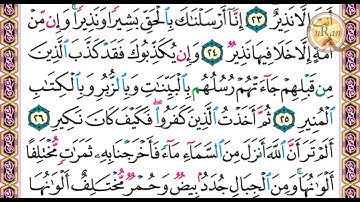 إِلَّا نَذِيرٌ ٢٣ إِنَّا أَرْسَلْنَاكَ بِالْحَقِّ بَشِيرًا وَنَذِيرًا وَإِن مِّنْ
أُمَّةٍ إِلَّا خَلَا فِيهَا نَذِيرٌ ٢٤ وَإِن يُكَذِّبُوكَ فَقَدْ كَذَّبَ الَّذِينَ
مِن قَبْلِهِمْ جَاءَتْهُمْ رُسُلُهُم بِالْبَيِّنَاتِ وَبِالزُّبُرِ وَبِالْكِتَابِ
الْمُنِيرِ ٢٥ ثُمَّ أَخَذْتُ الَّذِينَ كَفَرُوا فَكَيْفَ كَانَ نَكِيرِ ٢٦
أَلَمْ تَرَ أَنَّ اللَّهَ أَنزَلَ مِنَ السَّمَاءِ مَاءً فَأَخْرَجْنَا بِهِ ثَمَرَاتٍ مُّخْتَلِفًا
أَلْوَانُهَا وَمِنَ الْجِبَالِ جُدَدٌ بِيضٌ وَحُمْرٌ مُّخْتَلِفٌ أَلْوَانُهَا